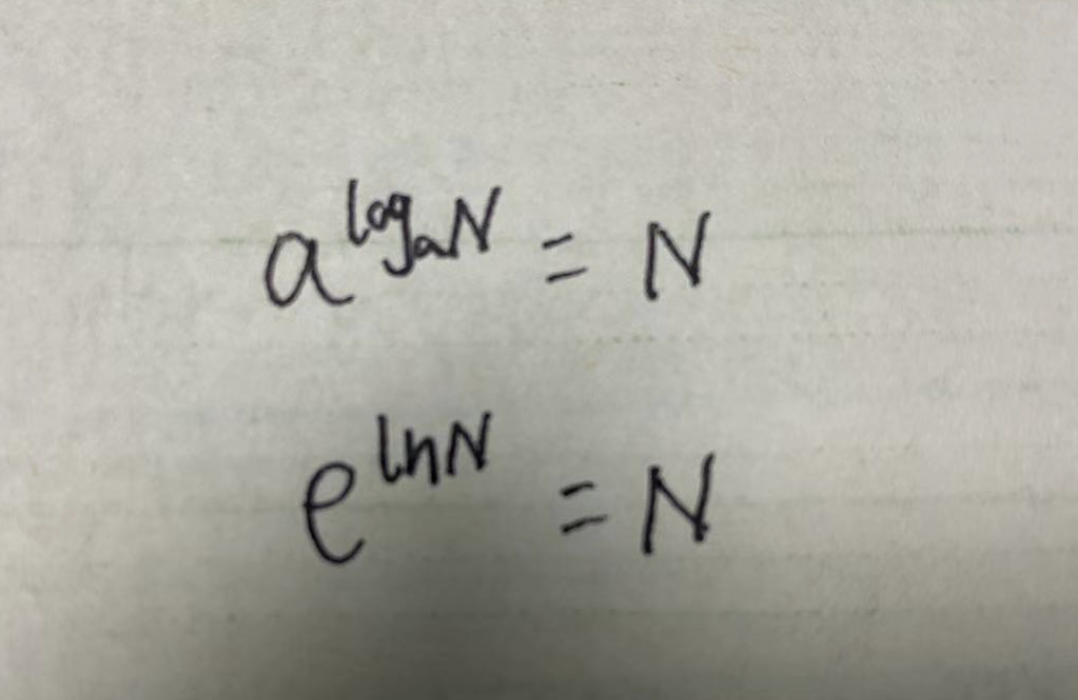 a^{log_a N} = N
e^{ln N} = N